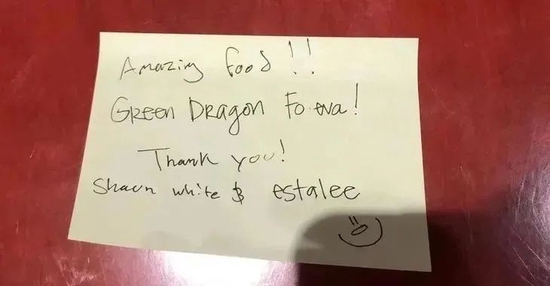 Amazing food!!
Green Dragon Fo eva!
Thank you!
Shaun white $ estalee